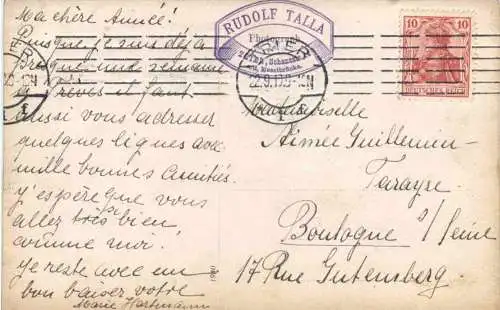 Ma chère Aimée!
Puisque je suis déjà
presque une semaine
à Trèves il faut
aussi vous adresser
quelques lignes avec
mille bonnes amitiés.
J'espère que vous
allez très bien,
comme moi.
Je reste avec un
bon baiser votre
Marie Hartmann
RUDOLF TALLA
Photograph
TRIER
22.9.
Mademoiselle
Aimée Guillemin-
Tarayre
Boulogne s/Seine
17 Rue Gutenberg.
10 10
DEUTSCHES REICH